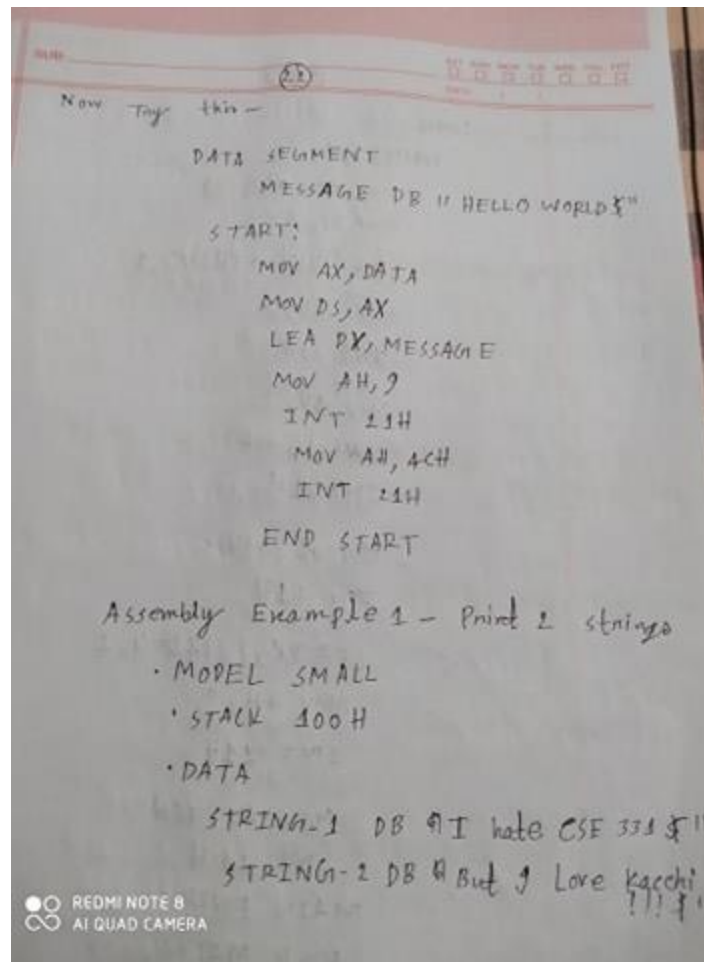 Now Try this -
DATA SEGMENT
MESSAGE DB "HELLO WORLD$"
START:
MOV AX, DATA
MOV DS, AX
LEA DX, MESSAGE
MOV AH, 9
INT 21H
MOV AH, 4CH
INT 21H
END START
Assembly Example 1 - Print 2 strings
.MODEL SMALL
.STACK 100H
.DATA
STRING_1 DB "I hate CSE 331$"
STRING-2 DB "But I Love Kacchi
!!!$"
REDMI NOTE 8
AI QUAD CAMERA